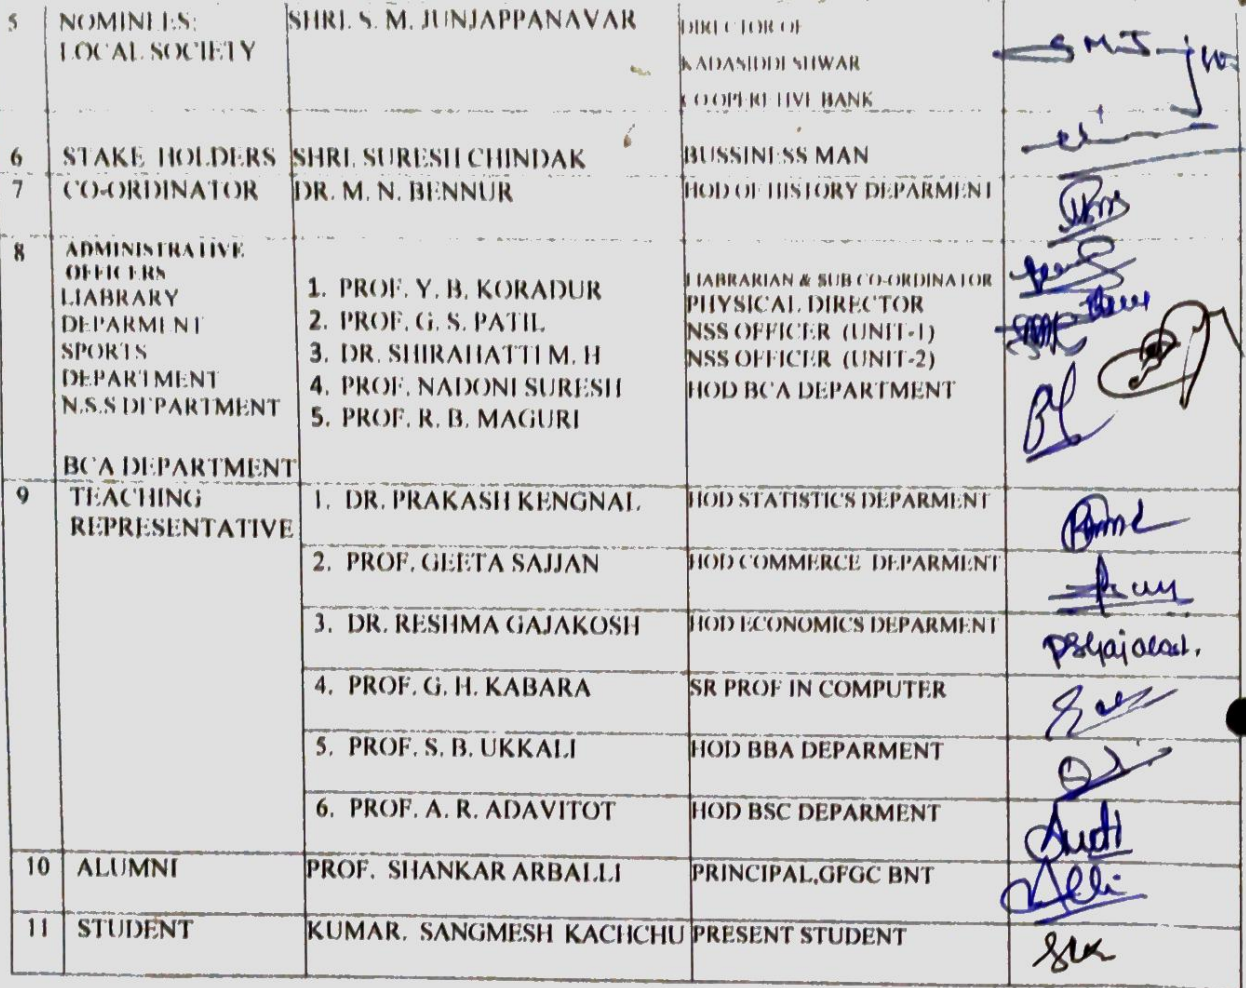 5 NOMINEES: SHRI. S. M. JUNJAPPANAVAR DIRECTOR OF
LOCAL SOCIETY KADASIDDESHWAR
CO OPERETIVE BANK
6 STAKE HOLDERS SHRI. SURESH CHINDAK BUSSINESS MAN
7 CO-ORDINATOR DR. M. N. BENNUR HOD OF HISTORY DEPARMENT
8 ADMINISTRATIVE
OFFICERS
LIABRARY
DEPARMENT
SPORTS
DEPARTMENT
N.S.S DEPARTMENT
BCA DEPARTMENT
1. PROF. Y. B. KORADUR
2. PROF. G. S. PATIL
3. DR. SHIRAHATTI M. H
4. PROF. NADONI SURESH
5. PROF. R. B. MAGURI
LIABRARIAN & SUB CO-ORDINATOR
PHYSICAL DIRECTOR
NSS OFFICER (UNIT-1)
NSS OFFICER (UNIT-2)
HOD BCA DEPARTMENT
9 TEACHING 1. DR. PRAKASH KENGNAL HOD STATISTICS DEPARMENT
REPRESENTATIVE
2. PROF. GEETA SAJJAN HOD COMMERCE DEPARMENT
3. DR. RESHMA GAJAKOSH HOD ECONOMICS DEPARMENT
4. PROF. G. H. KABARA SR PROF IN COMPUTER
5. PROF. S. B. UKKALI HOD BBA DEPARMENT
6. PROF. A. R. ADAVITOT HOD BSC DEPARMENT
10 ALUMNI PROF. SHANKAR ARBALLI PRINCIPAL,GFGC BNT
11 STUDENT KUMAR. SANGMESH KACHCHU PRESENT STUDENT